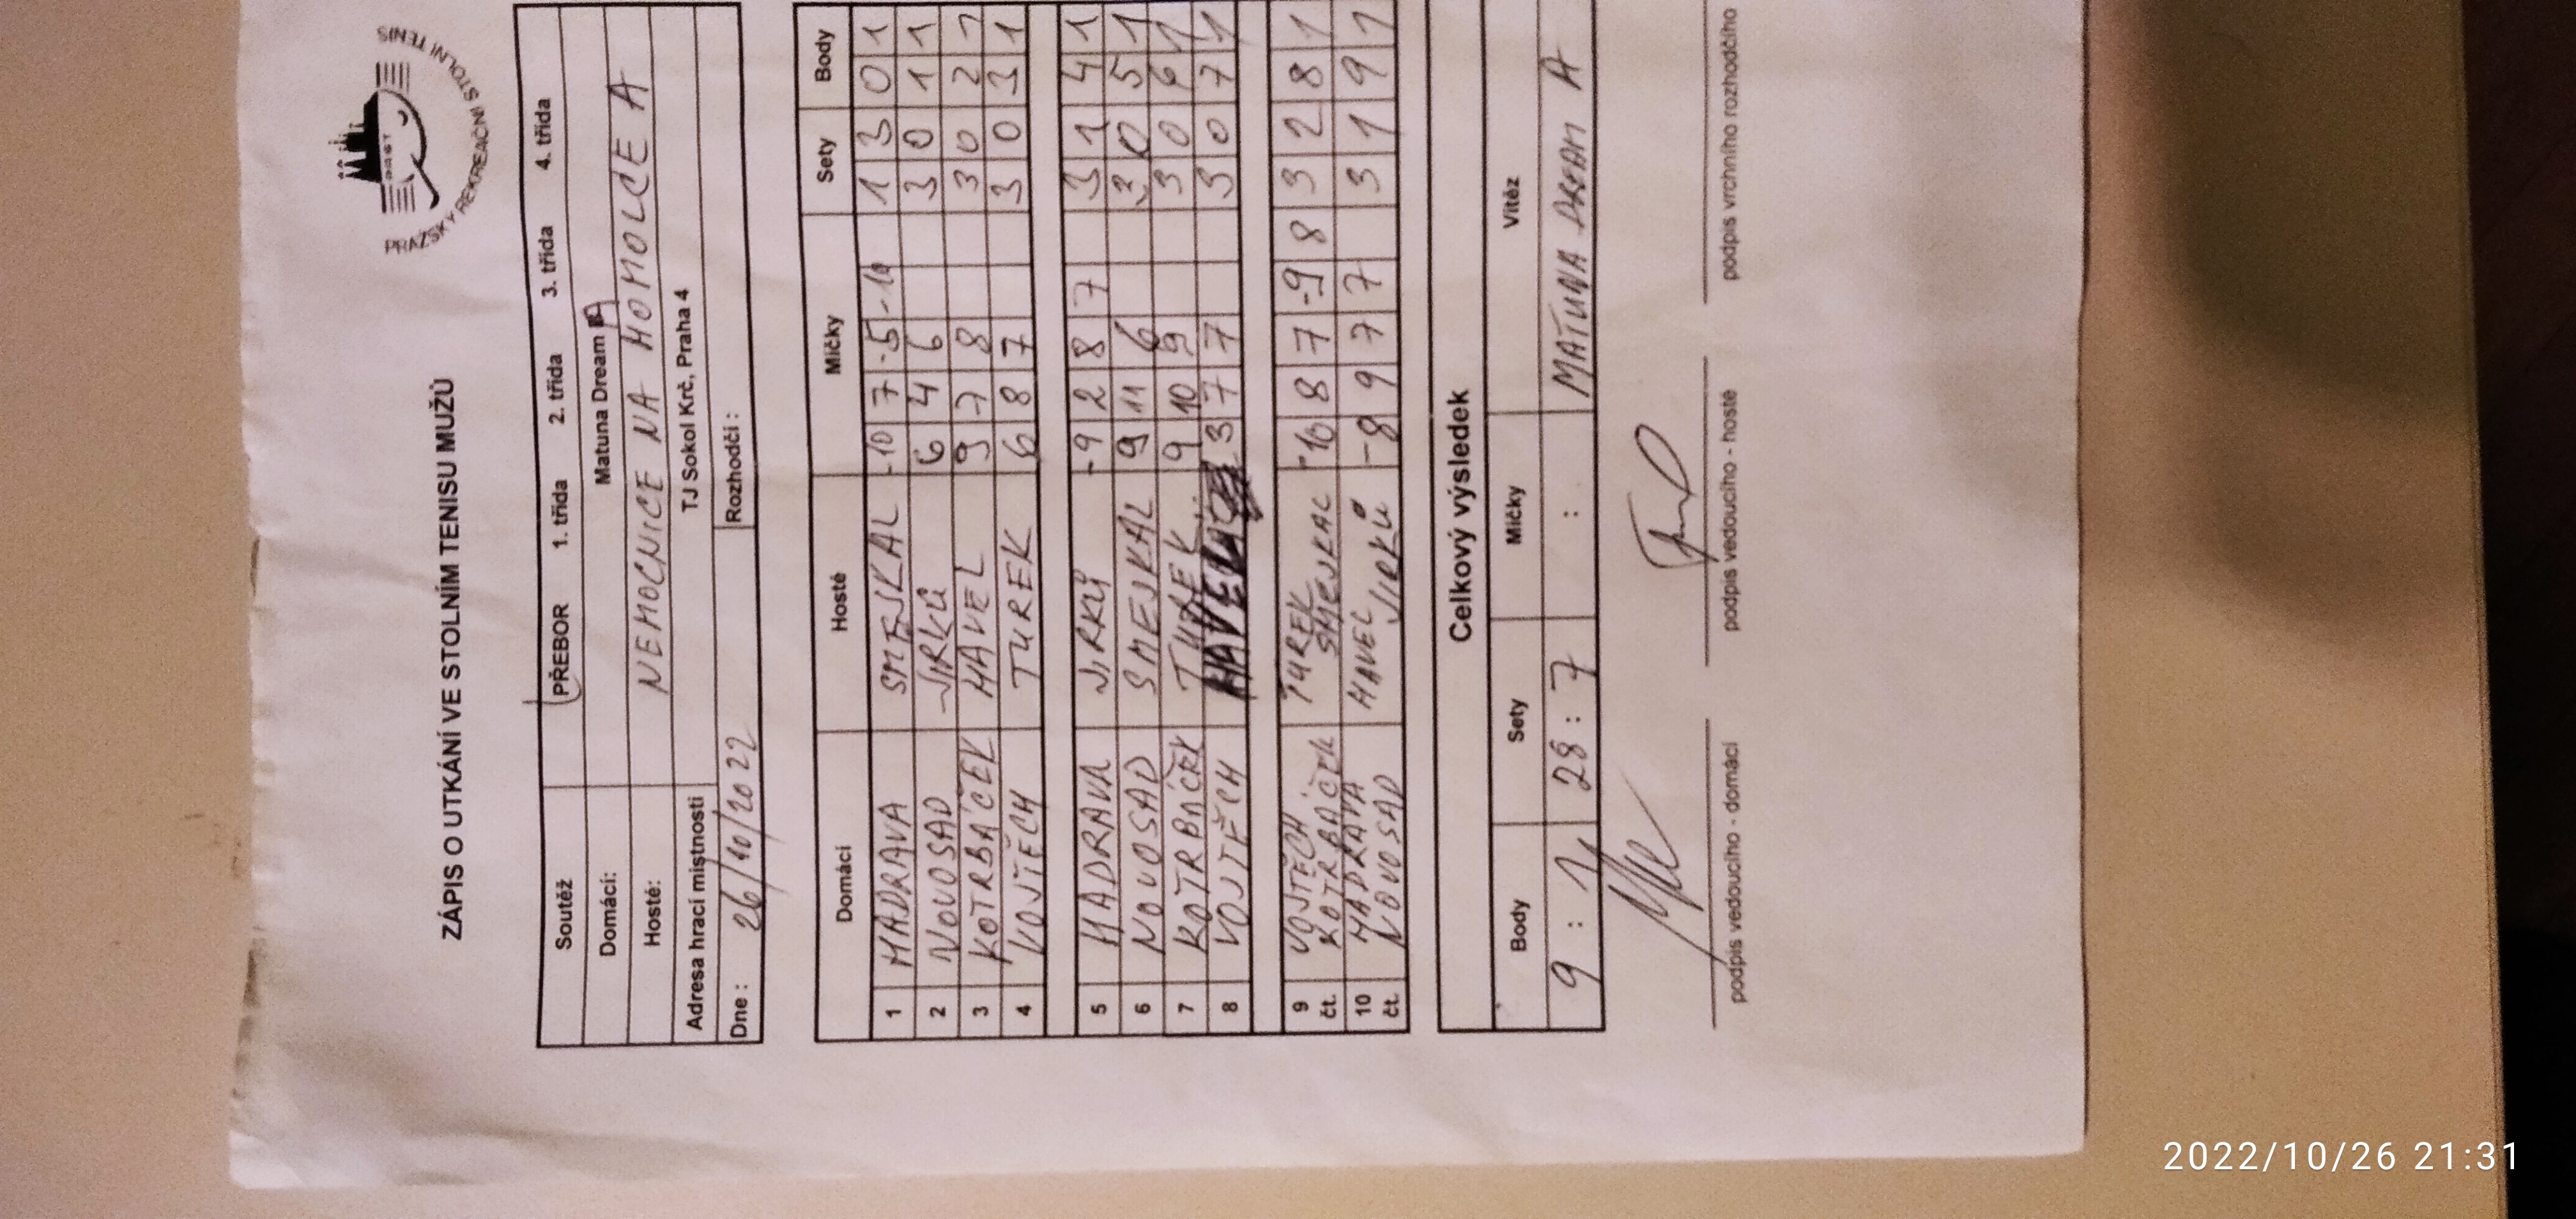 PRAŽSKÝ REKREAČNÍ STOLNÍ TENIS
ZÁPIS O UTKÁNÍ VE STOLNÍM TENISU MUŽŮ
Soutěž PŘEBOR 1. třída 2. třída 3. třída 4. třída
Domácí: Matuna Dream A
Hosté: NEMOCNICE NA HOMOLCE A
Adresa hrací místnosti TJ Sokol Krč, Praha 4
Dne : 26/10/2022 Rozhodčí :
Domácí Hosté Míčky Sety Body
1 HADRAVA SMEJKAL -10 7 -5 -10 1 3 0 1
2 NOVOSAD JIRKŮ 6 4 6 3 0 1 1
3 KOTRBÁČEK HAVEL 9 7 8 3 0 2 1
4 VOJTĚCH TUREK 6 8 7 3 0 3 1
5 HADRAVA JIRKŮ -9 2 8 7 3 1 4 1
6 NOVOSAD SMEJKAL 9 11 6 3 0 5 1
7 KOTRBÁČEK TUREK 9 10 9 3 0 6 1
8 VOJTĚCH HAVEL 3 7 7 3 0 7 1
9 čt. VOJTĚCH KOTRBÁČEK TUREK SMEJKAL -10 8 7 -9 8 3 2 8 1
10 čt. HADRAVA NOVOSAD HAVEL JIRKŮ -8 9 7 7 3 1 9 1
Celkový výsledek
Body Sety Míčky Vítěz
9 : 1 28 : 7 : MATUNA DREAM A
podpis vedoucího - domácí podpis vedoucího - hosté podpis vrchního rozhodčího
2022/10/26 21:31